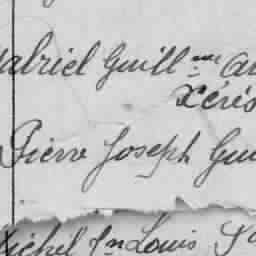 abriel Guill^me au
Xérés
Pierre Joseph Gui
ichel Jn Louis